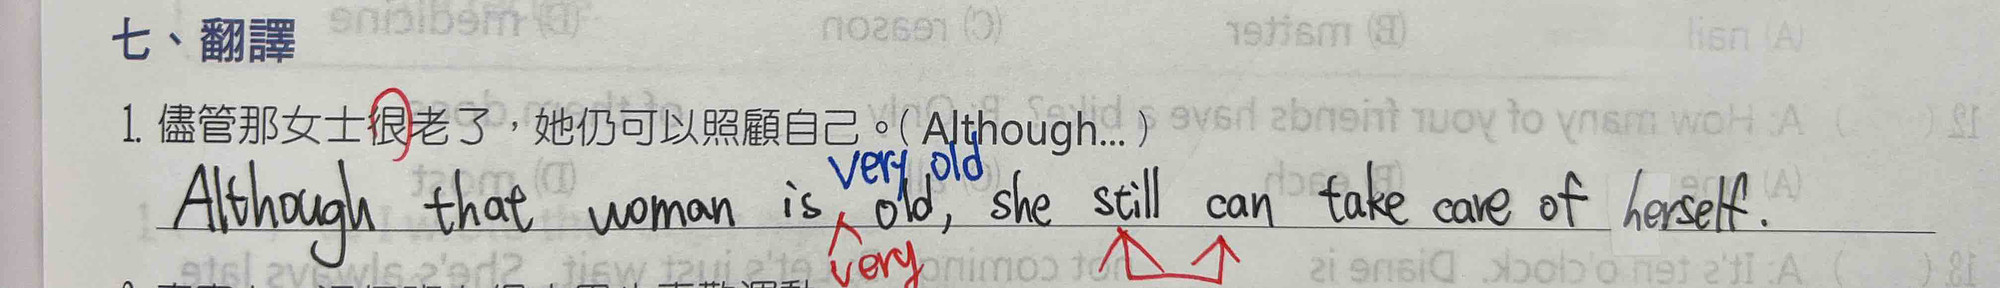 七、翻譯
1. 儘管那女士很老了，她仍可以照顧自己。( Although... )
very old
Although that woman is old, she still can take care of herself.
very